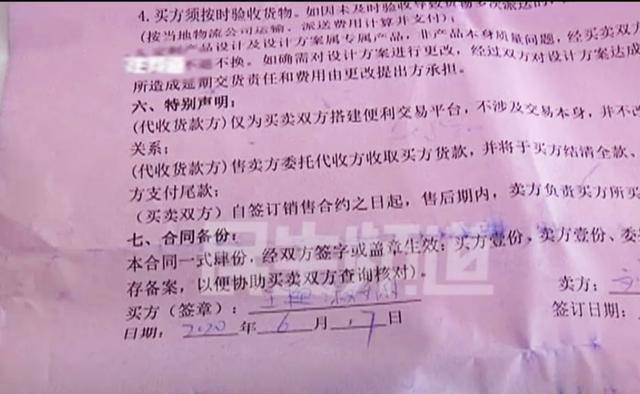 4. 买方须按时验收货物。如因未及时验收导致货物多次派送的
(按当地物流公司运输、派送费用计算并支付);
产品设计及设计方案属专属产品，非产品本身质量问题，经买卖双方
不换。如确需对设计方案进行更改，经过双方对设计方案达成
所造成延期交货责任和费用由更改提出方承担。
六、特别声明:
(代收货款方)仅为买卖双方搭建便利交易平台，不涉及交易本身，并不改
关系;
(代收货款方)售卖方委托代收方收取买方货款，并将于买方结清全款、
方支付尾款;
(买卖双方)自签订销售合约之日起，售后期内，卖方负责买方所买
七、合同备份:
本合同一式肆份，经双方签字或盖章生效: 买方壹份，卖方壹份、委
存备案，以便协助买卖双方查询核对)。
买方(签章):
卖方:
日期: 2020 年 6 月 7 日
签订日期:
民生频道